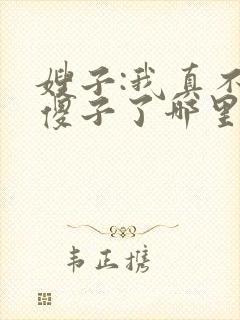 嫂子:我真不
傻子了哪里
韦正携